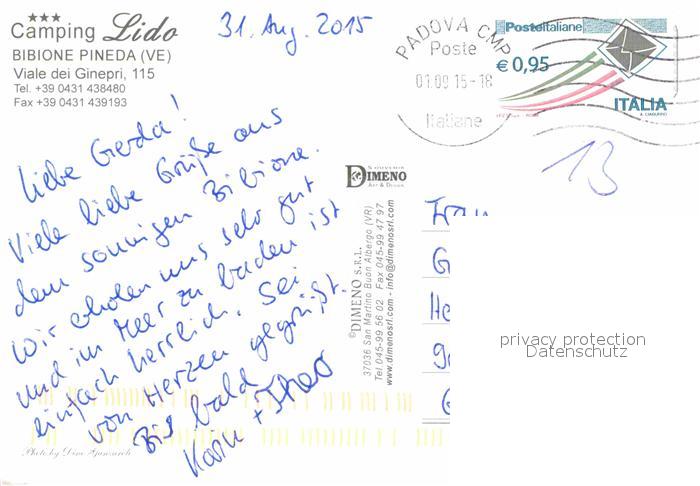 ★★★
Camping Lido
BIBIONE PINEDA (VE)
Viale dei Ginepri, 115
Tel. +39 0431 438480
Fax +39 0431 439193
31. Aug. 2015
PADOVA CMP
Poste
01.09 15-18
Italiane
Posteitaliane
€ 0,95
ITALIA
Liebe Gerda!
Viele liebe Grüße aus
dem sonnigen Bibione.
Wir erholen uns sehr gut
und im Meer zu baden ist
einfach herrlich. Sei
von Herzen gegrüßt.
Bis bald
Karin + Theo
13
SOUVENIR
DIMENO
ART & DESIGN
©DIMENO S.R.L.
37036 San Martino Buon Albergo (VR)
Tel 045-99 56 02 - Fax 045-99 47 97
www.dimenosrl.com - info@dimenosrl.com
Frau
G
He
9
G
privacy protection
Datenschutz
Photo by Dino